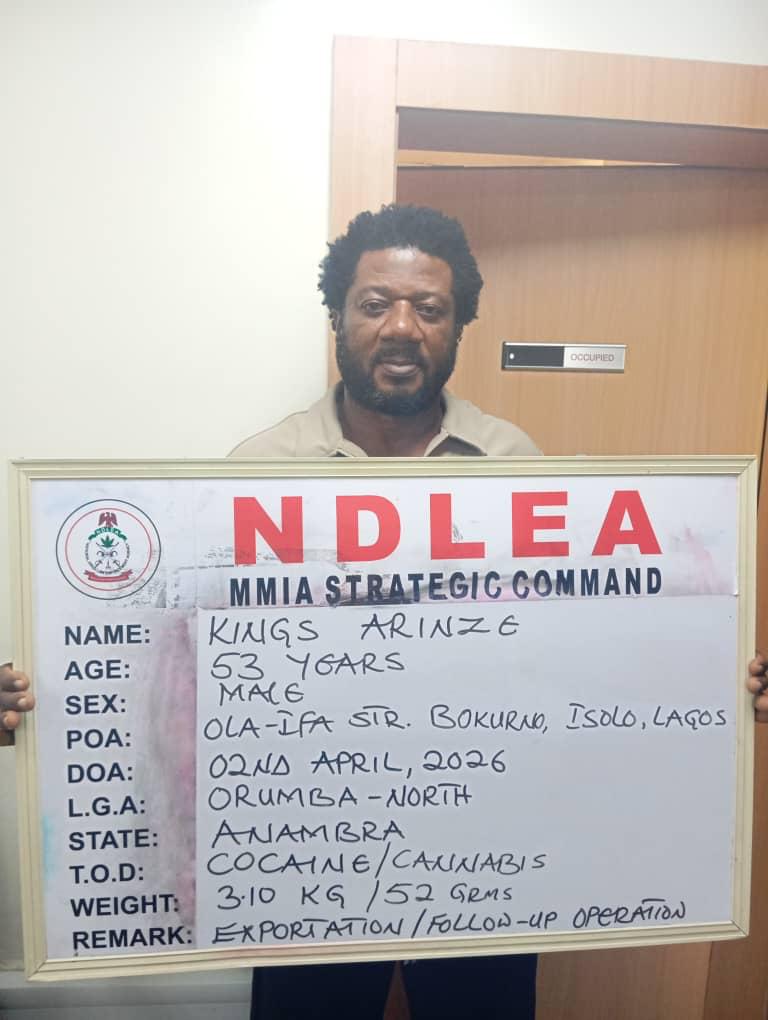 OCCUPIED
NDLEA
NDLEA
MMIA STRATEGIC COMMAND
NAME: KINGS ARINZE
AGE: 53 YEARS
SEX: MALE
POA: OLA-IFA STR. BOKURNO, ISOLO, LAGOS
DOA: 02ND APRIL, 2026
L.G.A: ORUMBA-NORTH
STATE: ANAMBRA
T.O.D: COCAINE/CANNABIS
WEIGHT: 3.10 KG / 52 GRMS
REMARK: EXPORTATION/FOLLOW-UP OPERATION